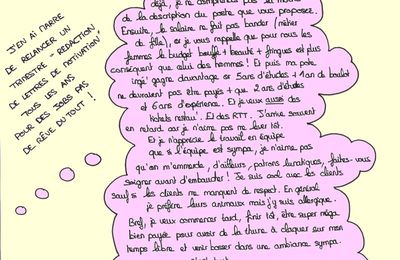 J'EN AI MARRE
DE RELANCER UN
TRIMESTRE "REDACTION
DE LETTRES DE MOTIVATION"
TOUS LES ANS
POUR DES JOBS PAS
DE RÊVE DU TOUT !
déjà, je ne comprends pas les
de la description du poste que vous proposez.
Ensuite, le salaire ne fait pas bander (métier
de fille), or je vous rappelle que pour nous les
femmes le budget bouffe + beauté + fringues est plus
conséquent que celui des hommes ! Et puis ma pote
ingé gagne davantage or 5ans d'études + 1 an de boulot
ne devraient pas être payés + que 2 ans d'études
et 6 ans d'expérience. Et je veux aussi des
tickets restau'. Et des RTT. J'arrive souvent
en retard car je n'aime pas me lever tôt.
Et je n'apprécie le travail en équipe
que si l'équipe est sympa, je n'aime pas
qu'on m'emmerde, d'ailleurs, patrons lunatiques, faites-vous
soigner avant d'embaucher ! Je suis cool avec les clients
sauf si les clients me manquent de respect. En général
je préfère leurs animaux mais j'y suis allergique.
Bref, je veux commencer tard, finir tôt, être super méga
bien payée pour avoir de la thune à claquer sur mon
temps libre et venir bosser dans une ambiance sympa.